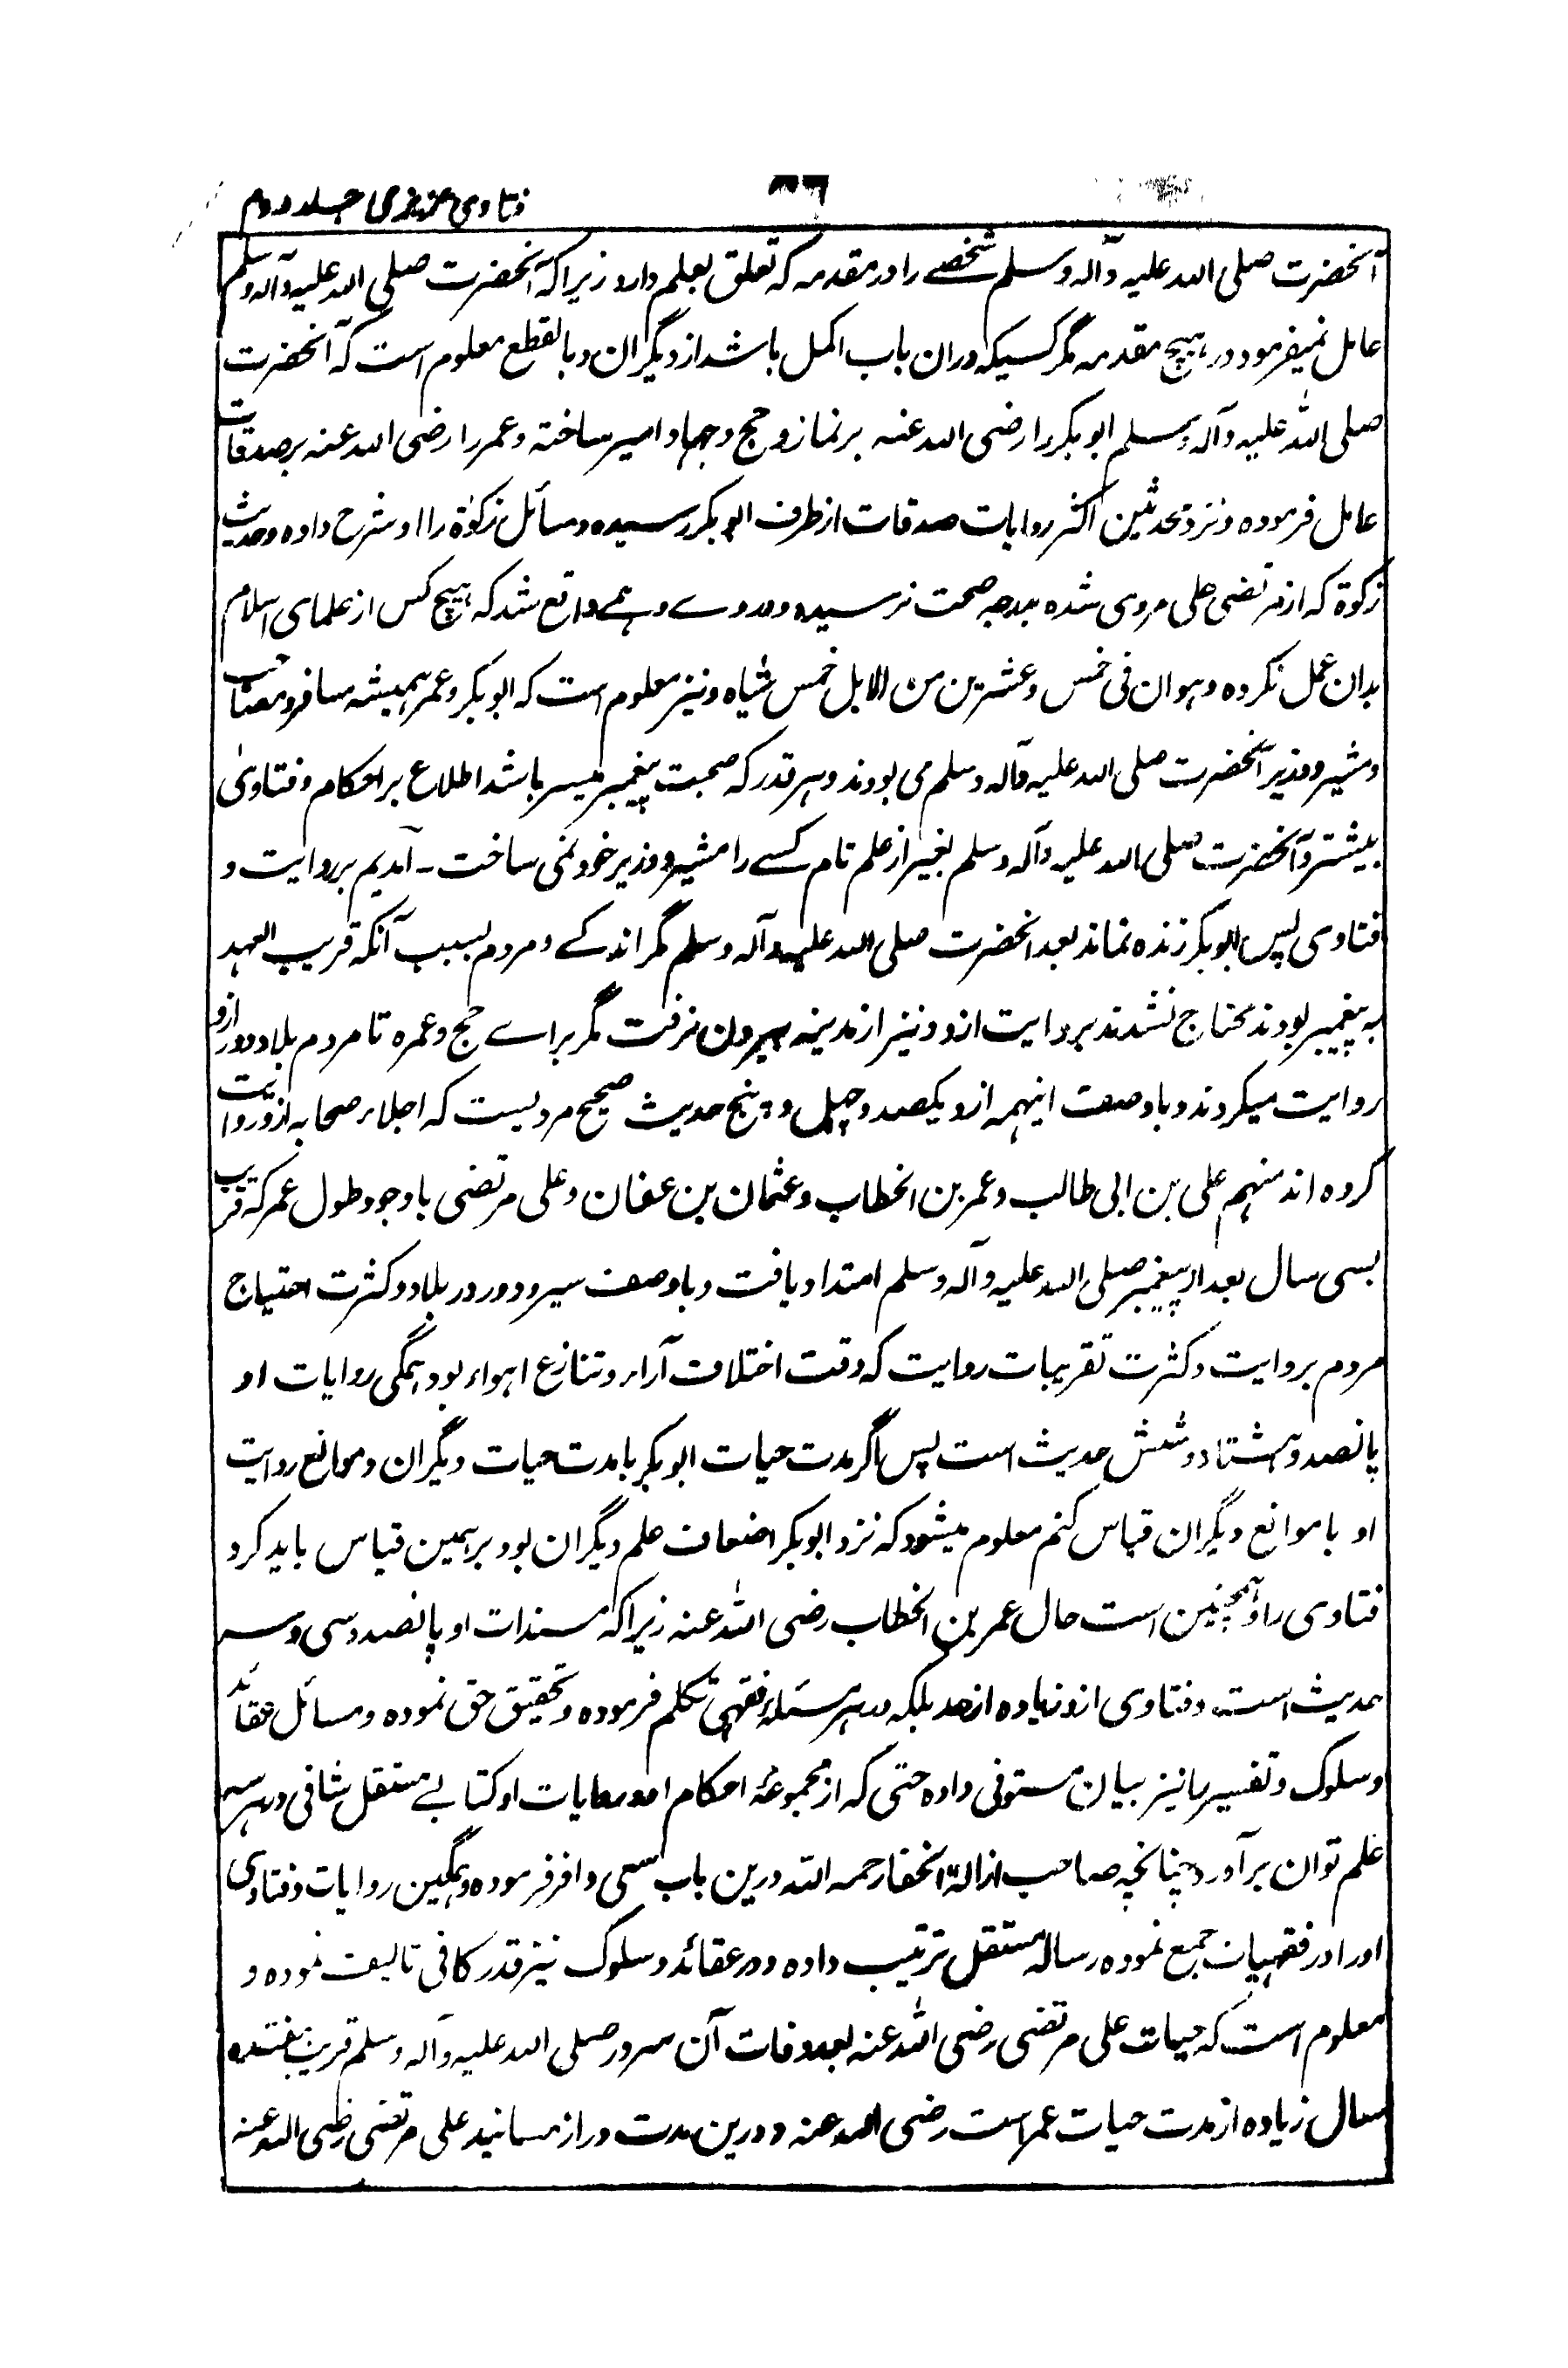 فتاوی عزیزی جلد دوم
آنحضرت صلی اللہ علیہ وآلہ وسلم شخصے را در مقدمہ کہ تعلق بعلم دارد زیراکہ آنحضرت صلی اللہ علیہ وآلہ وسلم
عامل نمیفرمود در ہیچ مقدمہ مگر کسیکہ دران باب اکمل باشد از دیگران و بالقطع معلوم است کہ آنحضرت
صلی اللہ علیہ وآلہ وسلم ابوبکر را رضی اللہ عنہ بر نماز و حج و جہاد امیر ساختہ و عمر را رضی اللہ عنہ بر صدقات
عامل فرمودہ و نزد محدثین اکثر روایات صدقات از طرف ابوبکر رسیدہ و مسائل زکوٰۃ را او شرح دادہ و حدیث
زکوۃ کہ از مرتضی علی مروی شدہ بدرجہ صحت نرسیدہ و در وے وہمے واقع شد کہ ہیچ کس از علمای اسلام
بدان عمل نکردہ و ہو ان فی خمس و عشرین من الابل خمس شیاہ و نیز معلوم است کہ ابوبکر و عمر ہمیشہ مسافر و مصاحب
و مشیر و وزیر آنحضرت صلی اللہ علیہ وآلہ وسلم می بودند و ہر قدر کہ صحبت پیغمبر میسر باشد اطلاع بر احکام و فتاویٰ
بیشتر و آنحضرت صلی اللہ علیہ وآلہ وسلم بغیر از علم تام کسے را مشیر و وزیر خود نمی ساخت ـ آمدیم بر روایت و
فتاوی پس ابوبکر زندہ نماند بعد آنحضرت صلی اللہ علیہ وآلہ وسلم مگر اندکے و مردم بسبب آنکہ قریب العہد
بہ پیغمبر بودند محتاج نشدند بروایت ازو و نیز از مدینہ بیرون نرفت مگر براے حج و عمرہ تا مردم بلاد دور ازو
روایت میکردند و باوصف اینہمہ ازو یکصد و چہل و پنج حدیث صحیح مرویست کہ اجلاء صحابہ ازو روایت
کردہ اند منہم علی بن ابی طالب و عمر بن الخطاب و عثمان بن عفان و علی مرتضی باوجود طول عمر کہ قریب
بسی سال بعد از پیغمبر صلی اللہ علیہ وآلہ وسلم امتداد یافت و باوصف سیر و دور در بلاد و کثرت احتیاج
مردم بروایت و کثرت تقریبات روایت کہ وقت اختلاف آراء و تنازع اہواء بود ہمگی روایات او
پانصد و ہشتاد و شش حدیث است پس اگر مدت حیات ابوبکر با مدت حیات دیگران و موانع روایت
او با موانع دیگران قیاس کنم معلوم میشود کہ نزد ابوبکر اضعاف علم دیگران بود بر ہمین قیاس باید کرد
فتاوی را و ہمچنین است حال عمر بن الخطاب رضی اللہ عنہ زیراکہ مسندات او پانصد و سی و سہ
حدیث است و فتاوی ازو زیادہ از حد بلکہ در ہر مسئلہ فقہی تکلم فرمودہ و تحقیق حق نمودہ و مسائل عقائد
و سلوک و تفسیر را نیز بیان مستوفی دادہ حتی کہ از مجموعۂ احکام او و روایات او کتابے مستقل شافی در ہر سہ
علم توان برآورد چنانچہ صاحب ازالۃ الخفا رحمہ اللہ درین باب سعی وافر فرمودہ و ہمگین روایات و فتاوی
او را در فقہیات جمع نمودہ رسالہ مستقل ترتیب دادہ و در عقائد و سلوک نیز قدر کافی تالیف نمودہ و
معلوم است کہ حیات علی مرتضی رضی اللہ عنہ بعد وفات آن سرور صلی اللہ علیہ وآلہ وسلم قریب ہفتدہ
سال زیادہ از مدت حیات عمر است رضی اللہ عنہ و درین مدت دراز مسانید علی مرتضی رضی اللہ عنہ